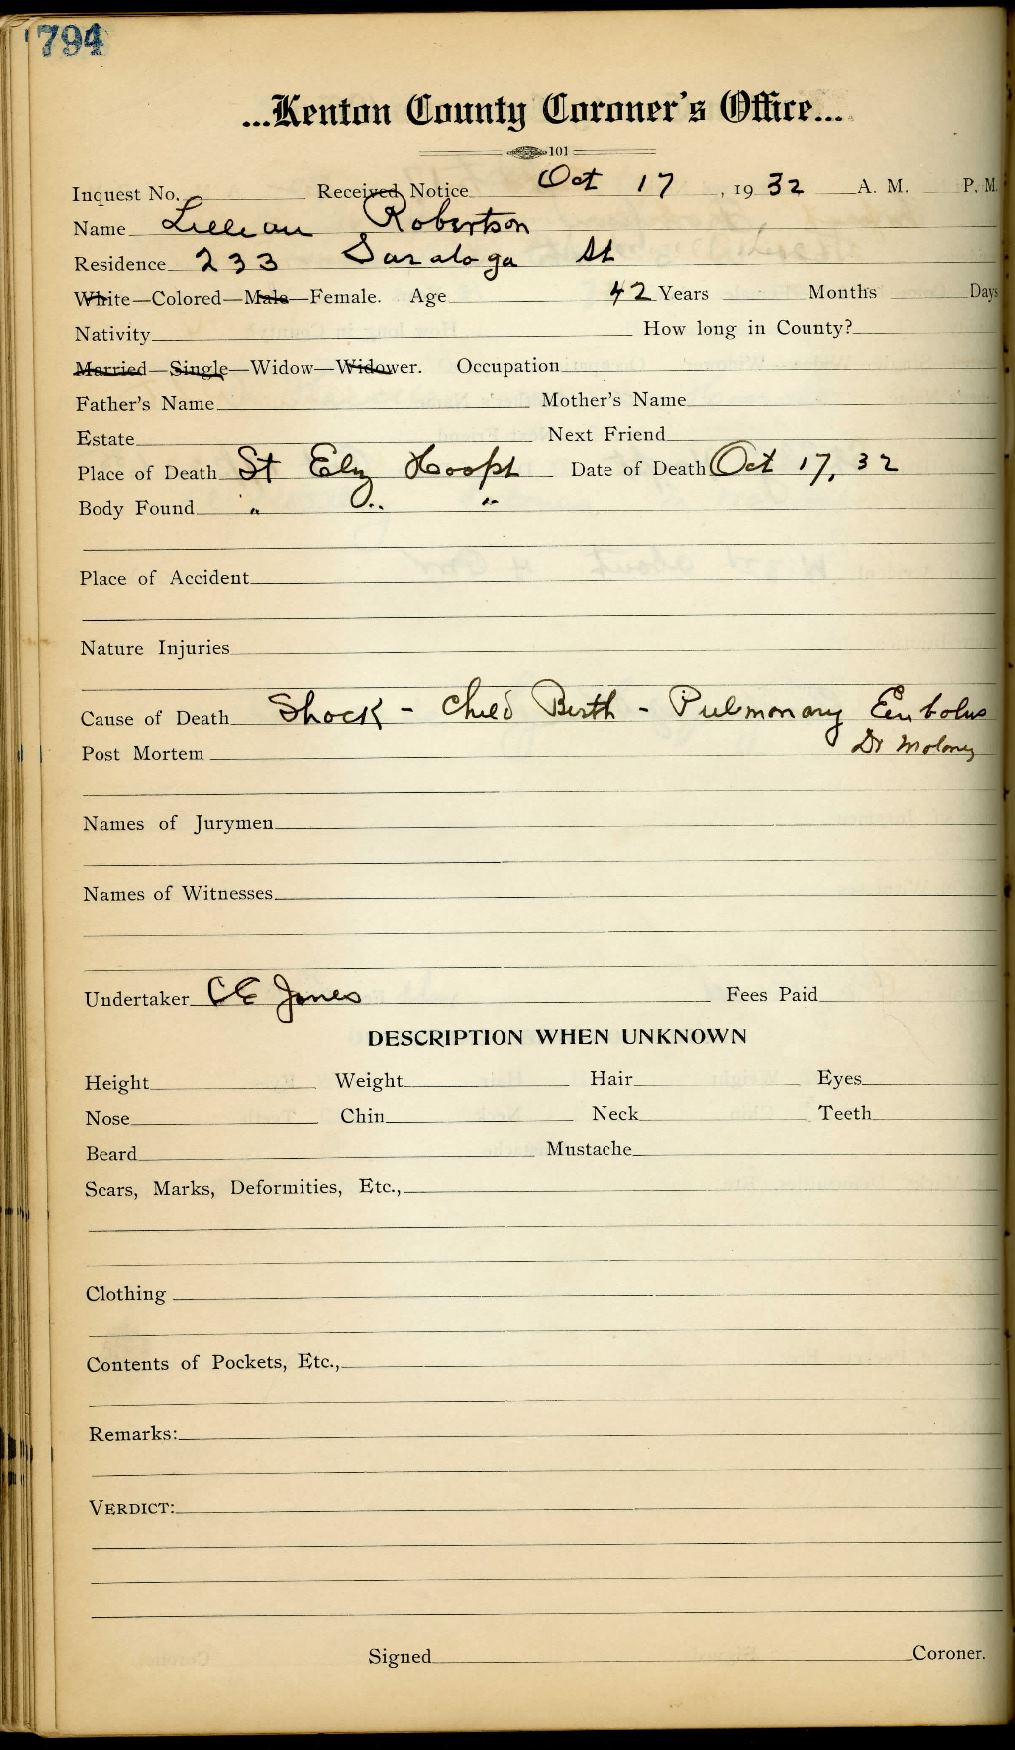 794
...Kenton County Coroner's Office...
101
Inquest No. Received Notice Oct 17, 1932 A. M. P. M.
Name Lillian Robertson
Residence 233 Saratoga St
White—Colored—Male—Female. Age 42 Years Months Days
Nativity How long in County?
Married—Single—Widow—Widower. Occupation
Father's Name Mother's Name
Estate Next Friend
Place of Death St Eliz Hospt Date of Death Oct 17, 32
Body Found " " "
Place of Accident
Nature Injuries
Cause of Death Shock - Child Birth - Pulmonary Embolus
Post Mortem Dr Molony
Names of Jurymen
Names of Witnesses
Undertaker CE Jones Fees Paid
DESCRIPTION WHEN UNKNOWN
Height Weight Hair Eyes
Nose Chin Neck Teeth
Beard Mustache
Scars, Marks, Deformities, Etc.,
Clothing
Contents of Pockets, Etc.,
Remarks:
VERDICT:
Signed Coroner.